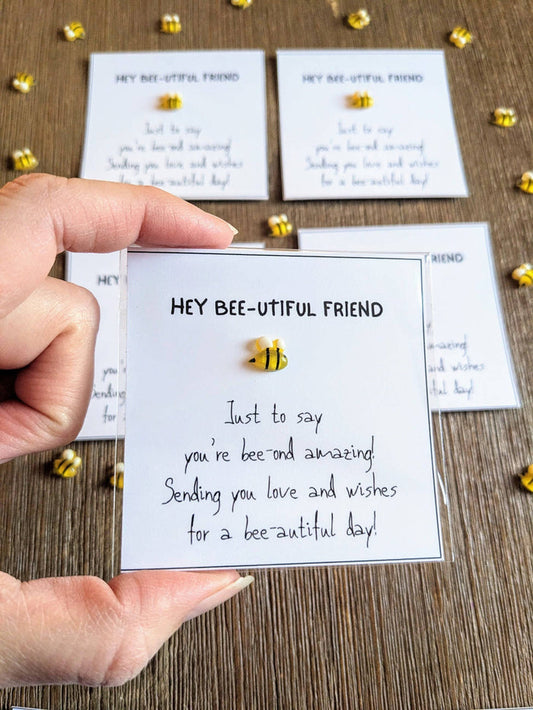 HEY BEE-UTIFUL FRIEND
Just to say
you're bee-ond amazing!
Sending you love and wishes
for a bee-autiful day!
HEY BEE-UTIFUL FRIEND
Just to say
you're bee-ond amazing!
Sending you love and wishes
for a bee-autiful day!
HEY
RIEND
you
amazing!
Sending
and wishes
for
day!
HEY BEE-UTIFUL FRIEND
Just to say
you're bee-ond amazing!
Sending you love and wishes
for a bee-autiful day!